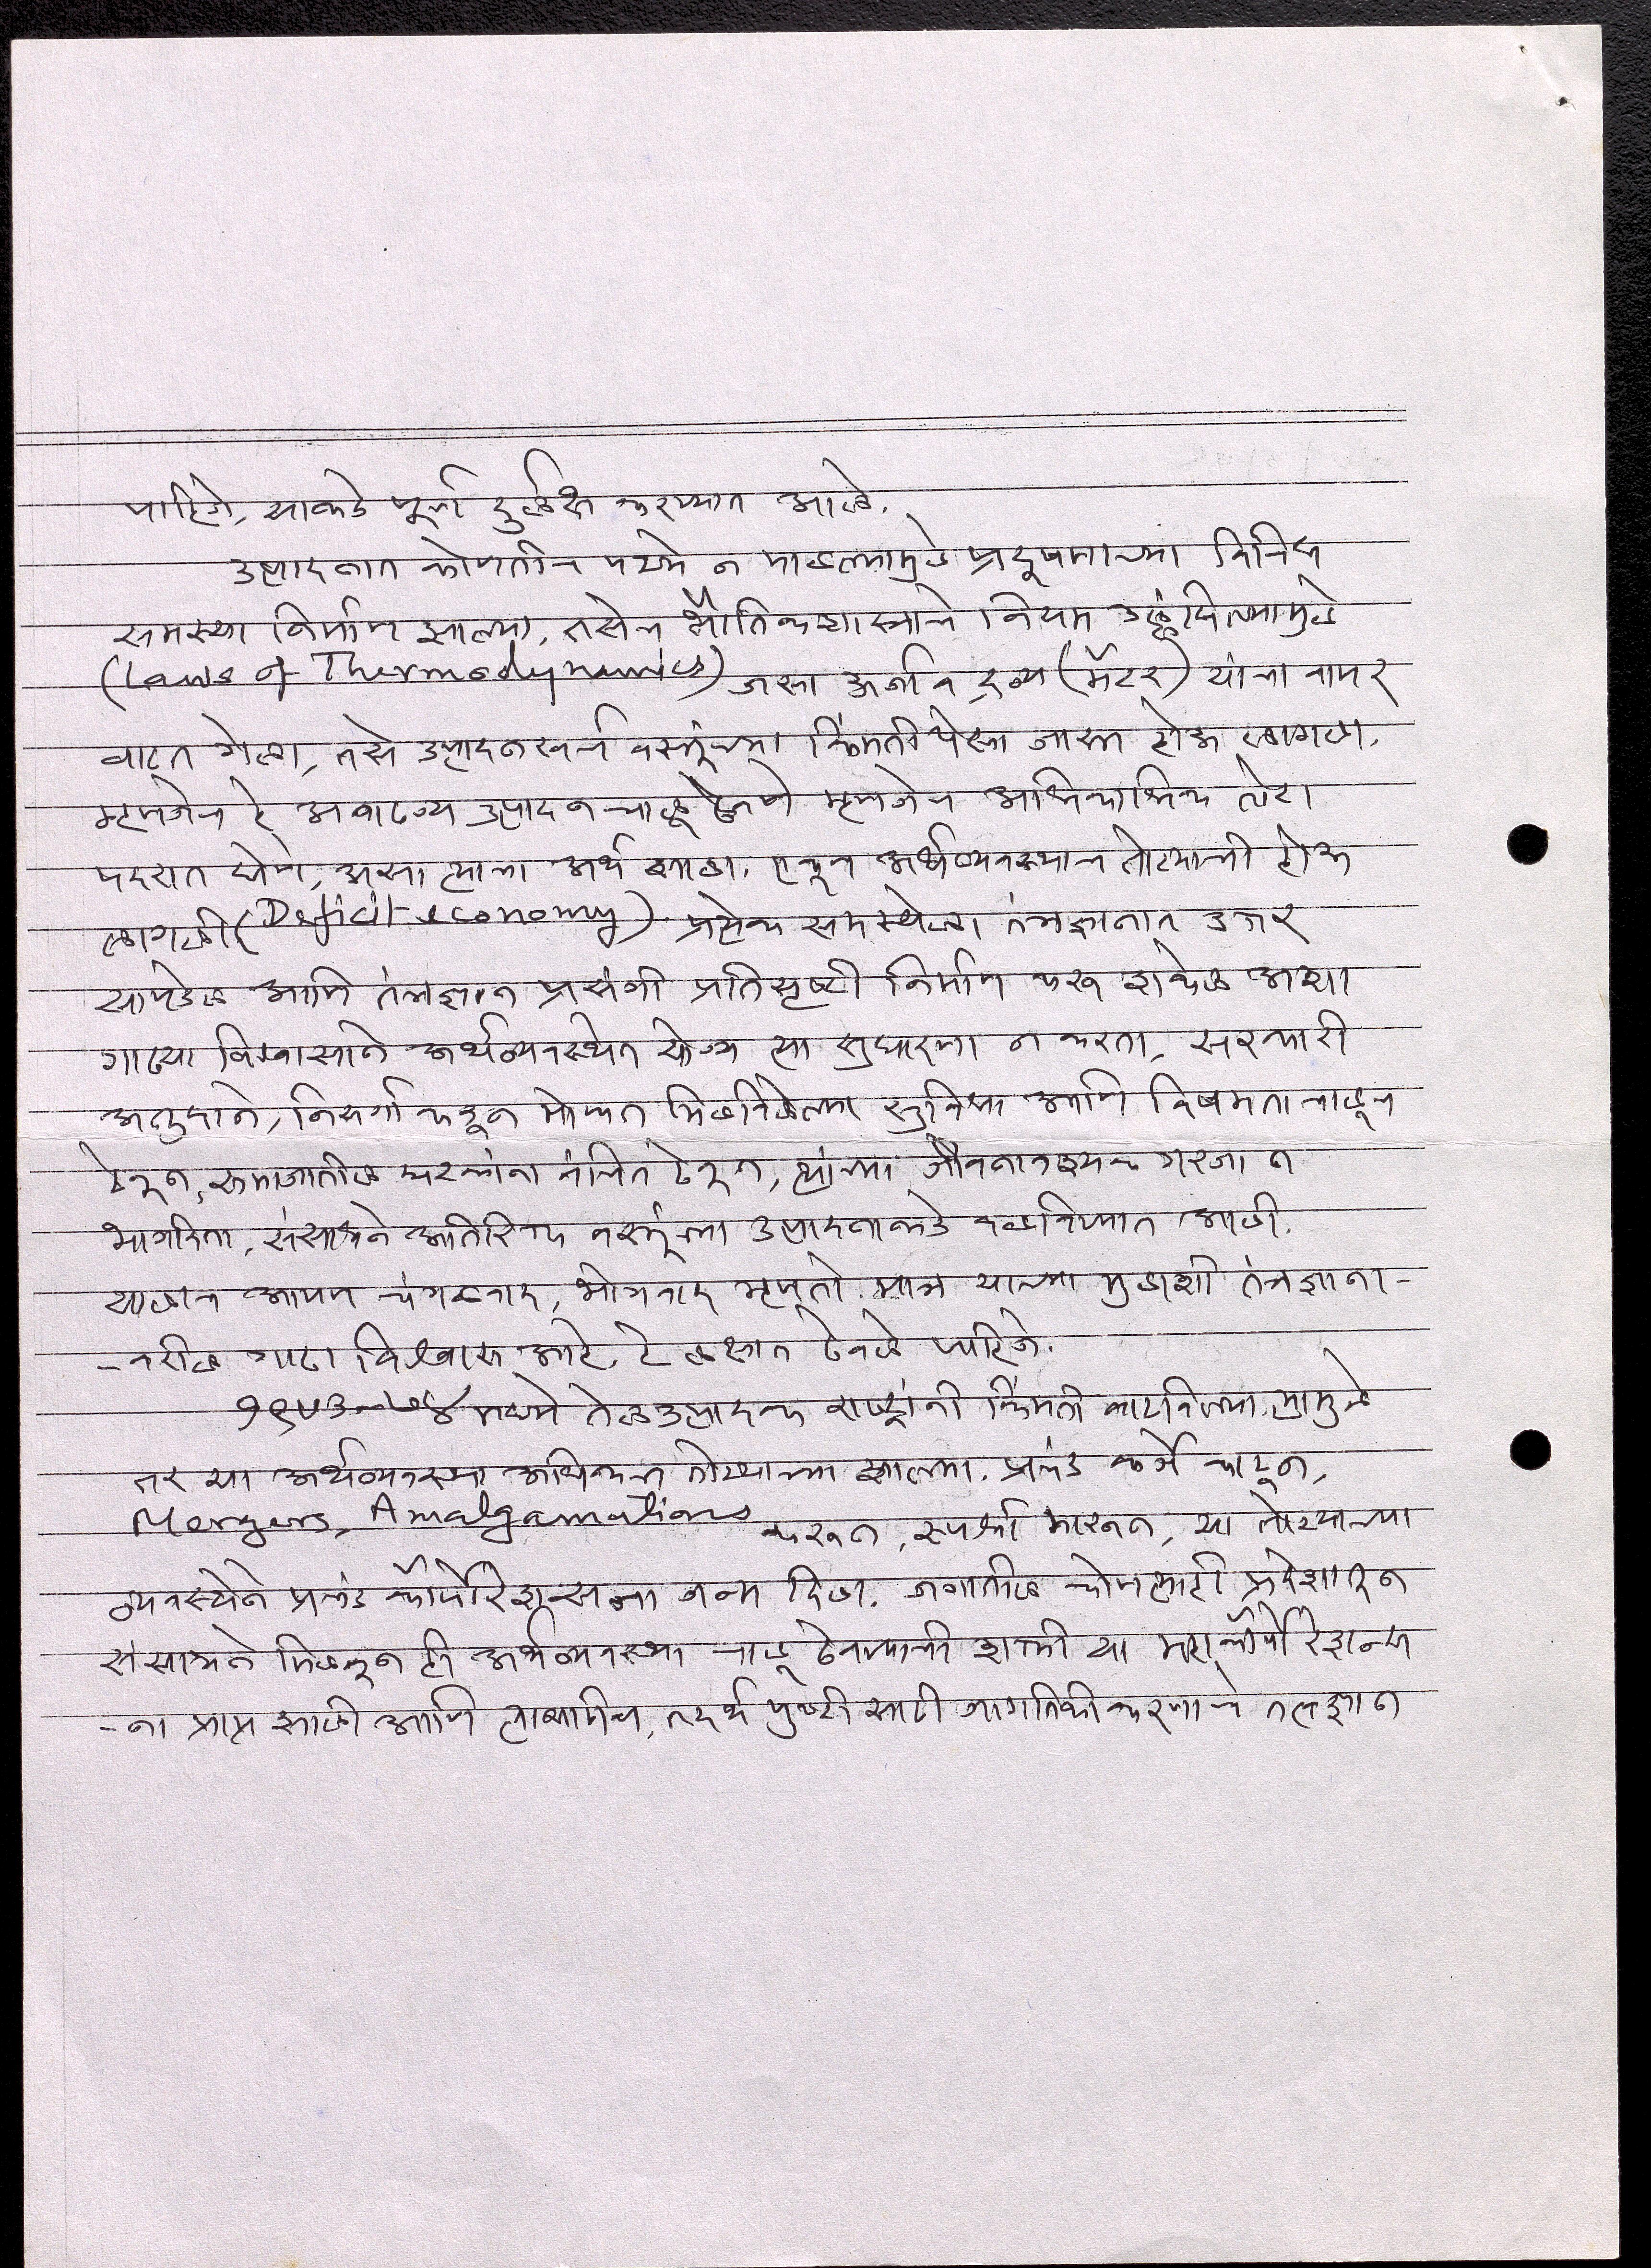 पाहिजे, याकडे पूर्ण दुर्लक्ष करण्यात आले.
उत्पादनात कोणतीच पथ्ये न पाळल्यामुळे प्रदूषणाच्या विविध
समस्या निर्माण झाल्या, तसेच भौतिकशास्त्राचे नियम उल्लंघिल्यामुळे
(Laws of Thermodynamics) जसा ऊर्जा व द्रव्य (मॅटर) यांचा वापर
वाढत गेला, तसे उत्पादनखर्च वस्तूंच्या किंमतीपेक्षा जास्त होऊ लागला.
म्हणजेच हे अवाढव्य उत्पादन चालू ठेवणे म्हणजेच अधिकाधिक तोटा
पदरात घेणे, असा त्याचा अर्थ झाला. एकूण अर्थव्यवस्थाच तोट्याची होऊ
लागली (Deficit economy). प्रत्येक समस्येला तंत्रज्ञानात उत्तर
सापडेल आणि तंत्रज्ञान प्रसंगी प्रतिसृष्टी निर्माण करू शकेल अशा
गाढ्या विश्वासाने अर्थव्यवस्थेत योग्य त्या सुधारणा न करता, सरकारी
अनुदाने, निसर्गाकडून मोफत मिळविलेल्या सुविधा आणि विषमता चालूच
ठेवून, समाजातील घटकांना वंचित ठेवून, त्यांच्या जीवनावश्यक गरजा न
भागविता, संसाधने अतिरिक्त वस्तूंच्या उत्पादनाकडे वळविण्यात आली.
यालाच आपण चंगळवाद, भोगवाद म्हणतो. मात्र याच्या मुळाशी तंत्रज्ञाना-
-वरील गाढा विश्वास आहे, हे लक्षात ठेवले पाहिजे.
१९७३-७४ मध्ये तेलउत्पादक राष्ट्रांनी किंमती वाढविल्या, त्यामुळे
तर या अर्थव्यवस्था अधिकच तोट्याच्या झाल्या. प्रचंड कर्जे काढून,
Mergers, Amalgamations करून, स्पर्धा मारून, या तोट्याच्या
व्यवस्थेने प्रचंड कॉर्पोरेशन्सना जन्म दिला. जगातील कोणत्याही प्रदेशातून
संसाधने मिळवून ही अर्थव्यवस्था चालू ठेवण्याची शक्ती या महाकॉर्पोरेशन्स
-ना प्राप्त झाली आणि त्यासाठीच, तदर्थ पुष्टी साठी जागतिकीकरणाचे तत्वज्ञान